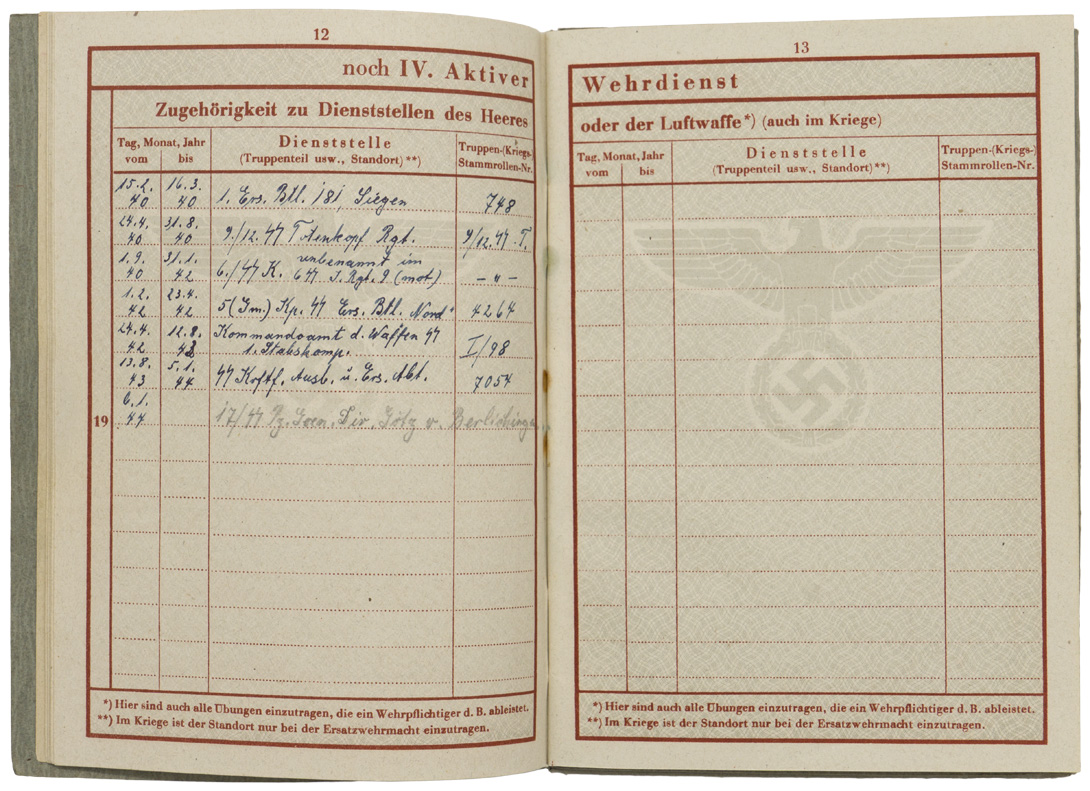 12
noch IV. Aktiver
Zugehörigkeit zu Dienststellen des Heeres
Tag, Monat, Jahr
vom bis
Dienststelle
(Truppenteil usw., Standort)**)
Truppen-(Kriegs-)
Stammrollen-Nr.
15.2. 16.3.
40 40 1. Ers. Btl. 181, Siegen 748
24.4. 31.8.
40 40 9./12. SS Totenkopf Rgt. 9/12. SS. T.
1.9. 31.1. umbenannt in
40 42 6./SS K. 6 SS I. Rgt. 9 (mot) – " –
1.2. 23.4.
42 42 5 (Gm.) Kp. SS Ers. Btl. Nord" 4264
24.4. 12.8. Kommandoamt d. Waffen SS
42 43 1. Stabskomp. I/98
13.8. 5.1.
43 44 SS Kftf. Ausb. u. Ers. Abt. 7054
6.1.
19 44 17/SS Pz. Gren. Div. Götz v. Berlichingen
*) Hier sind auch alle Übungen einzutragen, die ein Wehrpflichtiger d. B. ableistet.
**) Im Kriege ist der Standort nur bei der Ersatzwehrmacht einzutragen.
13
Wehrdienst
oder der Luftwaffe*) (auch im Kriege)
Tag, Monat, Jahr
vom bis
Dienststelle
(Truppenteil usw., Standort)**)
Truppen-(Kriegs-)
Stammrollen-Nr.
*) Hier sind auch alle Übungen einzutragen, die ein Wehrpflichtiger d. B. ableistet.
**) Im Kriege ist der Standort nur bei der Ersatzwehrmacht einzutragen.